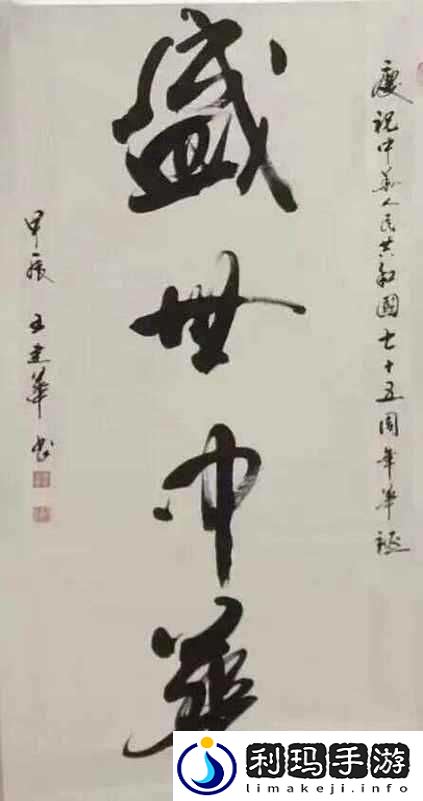 慶祝中華人民共和國七十五周年華誕
盛世中華
甲辰 王建華书
利玛手游
limakeji.info